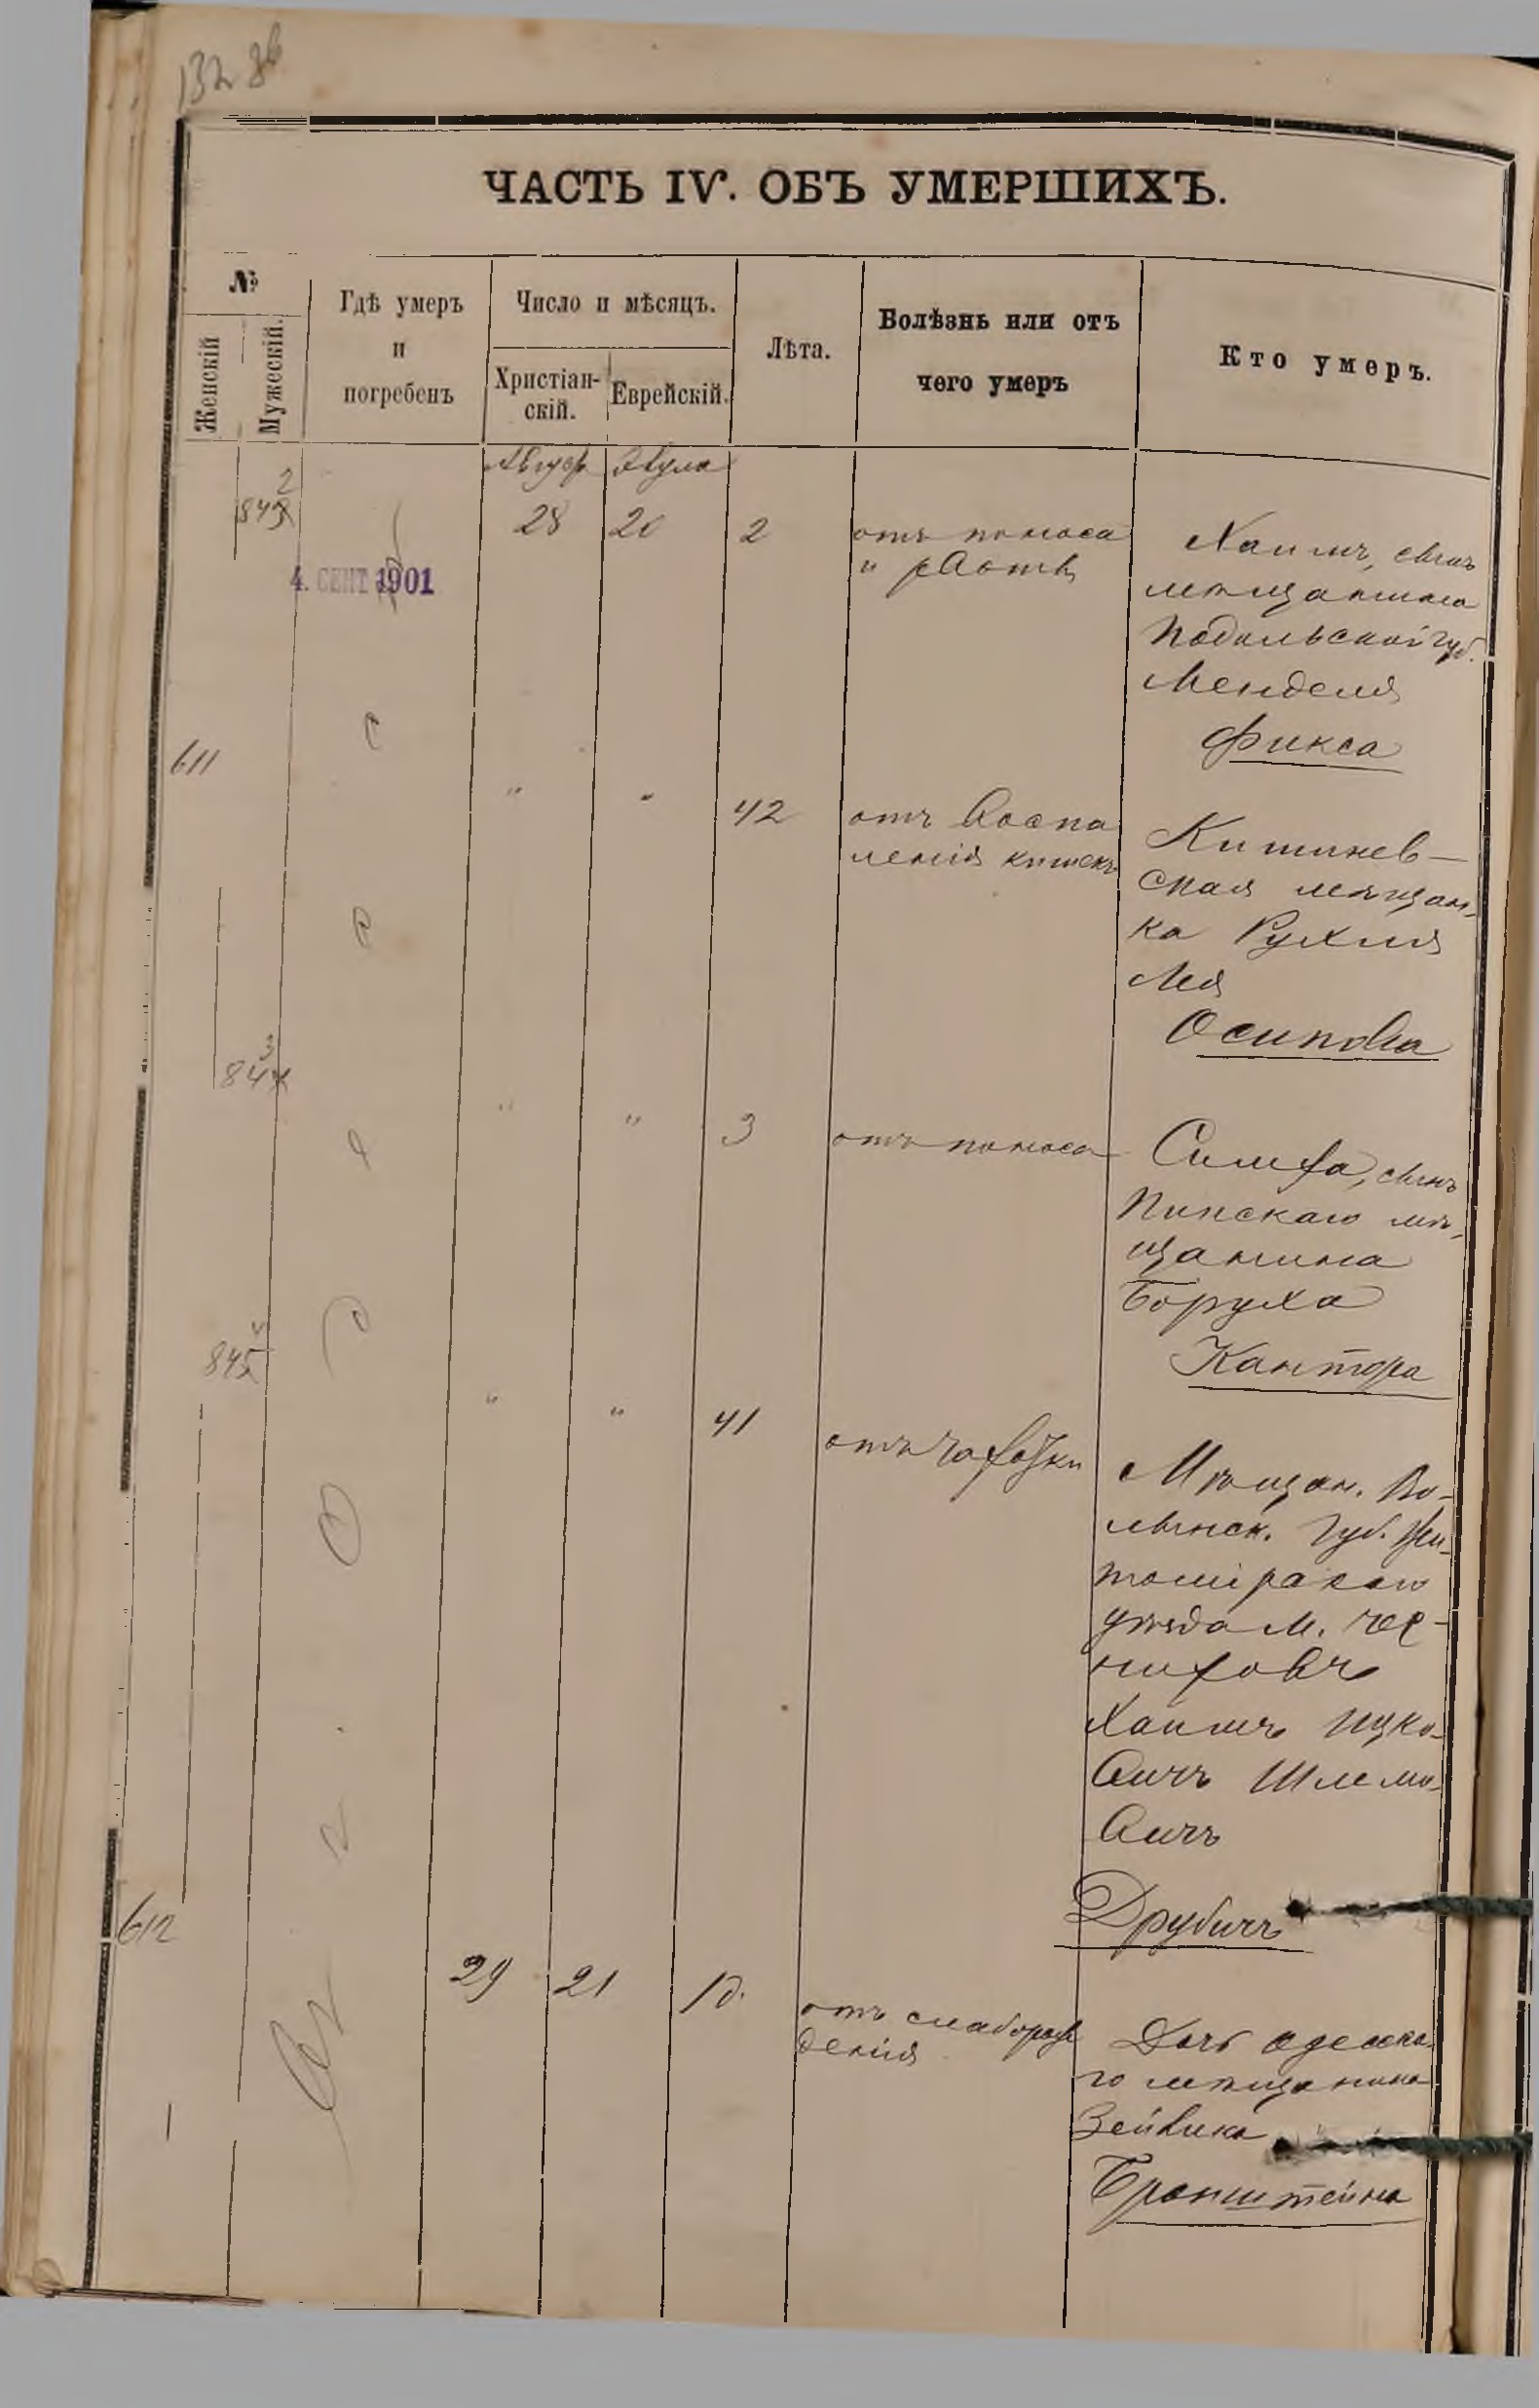 132 об
ЧАСТЬ IV. ОБЪ УМЕРШИХЪ.
№
Женскій
Мужескій.
Гдѣ умеръ
и
погребенъ
Число и мѣсяцъ.
Христіан-
скій.
Еврейскій.
Лѣта.
Болѣзнь или отъ
чего умеръ
Кто умеръ.
Авгус. Элула
842
28 20 2 отъ поноса
и рвоты
Хаимъ, сынъ
мѣщанина
Подольской губ.
Менделя
Фикса
4. СЕНТ 1901
611
" " 42 отъ воспа
ленія кишекъ
Кишинев-
ская мѣщан-
ка Рухля
Лея
Осипова
843
" " 3 отъ поноса
Симха, сынъ
Пинскаго мѣ-
щанина
Боруха
Кантора
844
" " 41 отъ чахотки
Мѣщан. Во-
лынск. Губ. Жи-
томірскаго
уѣзда м. Чер-
ниховъ
Хаимъ Ицко-
вичъ Шлемо-
вичъ
Друбичъ
612
29 21 1 д. отъ слаборож
денія
Дочь одесска-
го мѣщанина
Зейвика
Бронштейна
Одесса